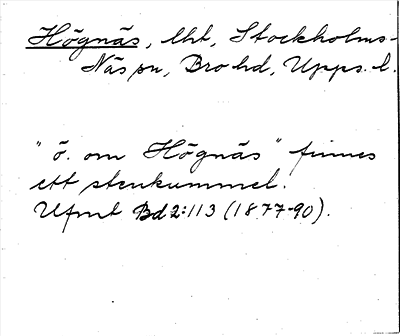 Högnäs, lht, Stockholms-
Näs sn, Bro hd, Upps. l.
"ö. om Högnäs" finnes
ett stenkummel.
Ufmt Bd 2:113 (1877-90).